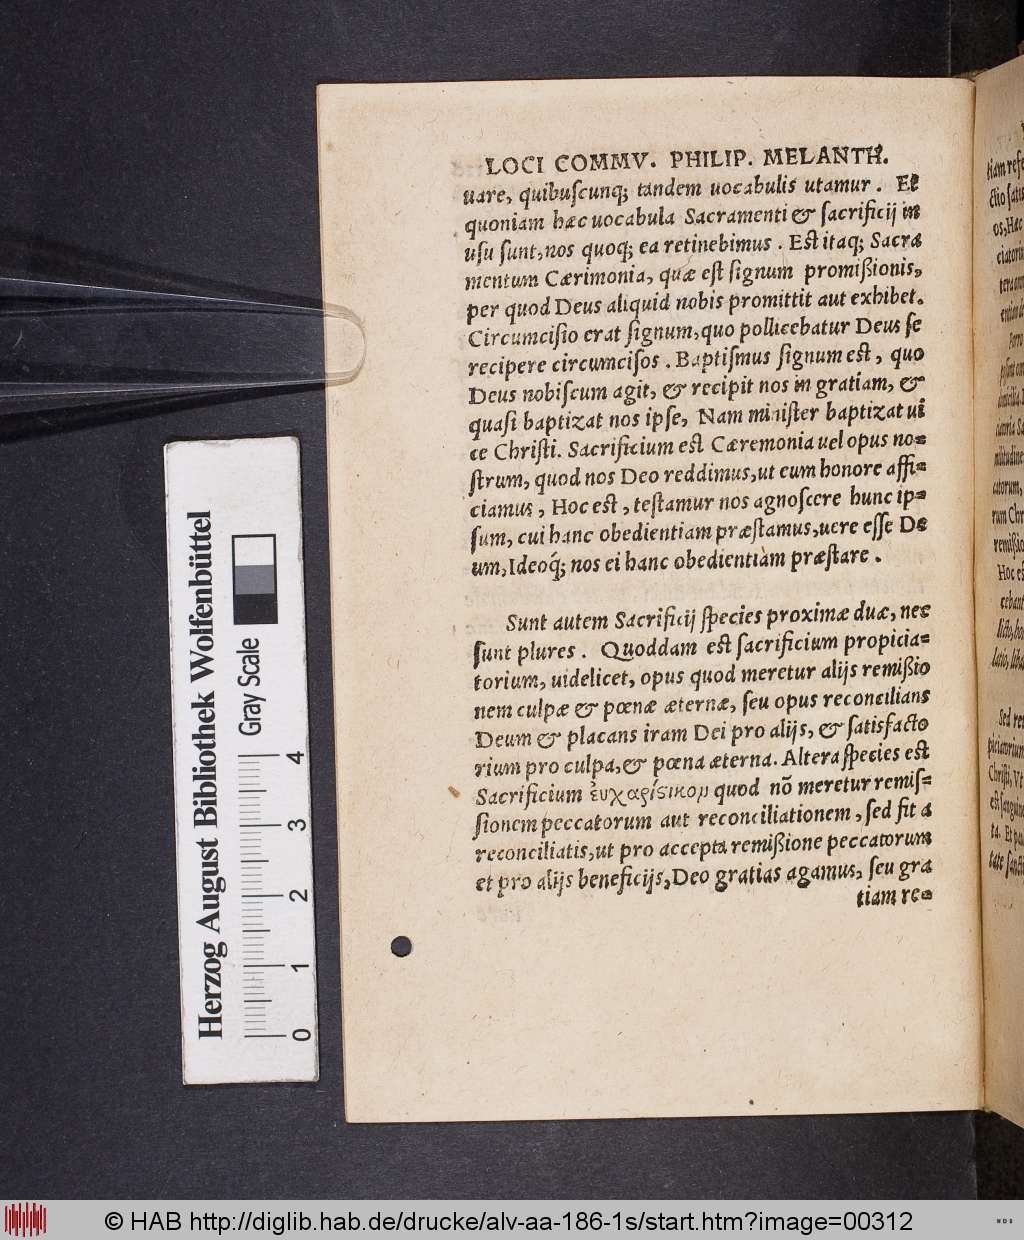 LOCI COMMV. PHILIP. MELANTH.
uare, quibuscunq; tandem uocabulis utamur. Et
quoniam hæc uocabula Sacramenti & sacrificij in
usu sunt, nos quoq; ea retinebimus. Est itaq; Sacra
mentum Cærimonia, quæ est signum promißionis,
per quod Deus aliquid nobis promittit aut exhibet.
Circumcisio erat signum, quo pollicebatur Deus se
recipere circumcisos. Baptismus signum est, quo
Deus nobiscum agit, & recipit nos in gratiam, &
quasi baptizat nos ipse, Nam minister baptizat ui
ce Christi. Sacrificium est Cæremonia uel opus no=
strum, quod nos Deo reddimus, ut eum honore affi=
ciamus, Hoc est, testamur nos agnoscere hunc ip=
sum, cui hanc obedientiam præstamus, uere esse De
um, Ideoq́; nos ei hanc obedientiam præstare.
Sunt autem Sacrificij species proximæ duæ, nec
sunt plures. Quoddam est sacrificium propicia=
torium, uidelicet, opus quod meretur alijs remißio
nem culpæ & pœnæ æternæ, seu opus reconcilians
Deum & placans iram Dei pro alijs, & satisfacto
rium pro culpa, & pœna æterna. Altera species est
Sacrificium ἐυχαριϛικομ quod nõ meretur remis=
sionem peccatorum aut reconciliationem, sed fit a
reconciliatis, ut pro accepta remißione peccatorum
et pro alijs beneficijs, Deo gratias agamus, seu gra
tiam re=
tiam refe
os, Hæc
ciatoriu
rum Chr
remißio
Hoc es
cebant
Sed res
piciatorium
Christi, Vt
est sanguine
Herzog August Bibliothek Wolfenbüttel
Gray Scale
0 1 2 3 4
© HAB http://diglib.hab.de/drucke/alv-aa-186-1s/start.htm?image=00312